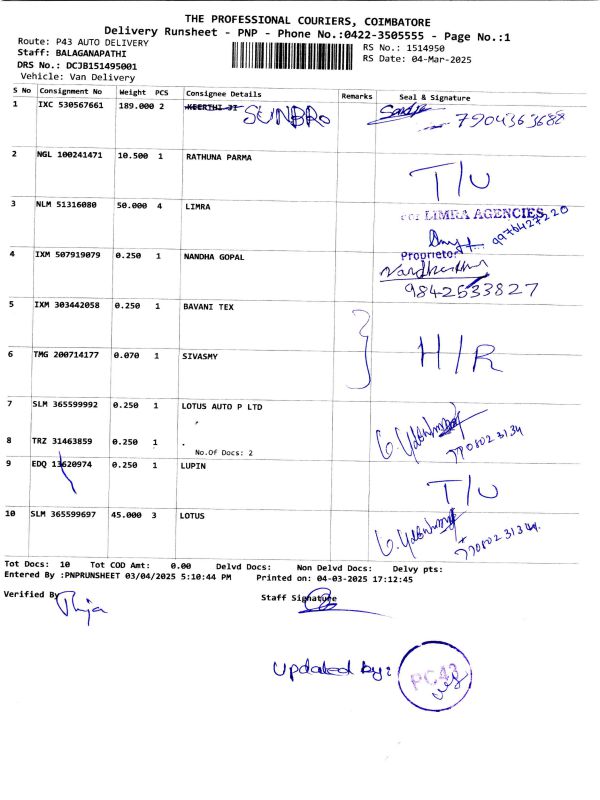 THE PROFESSIONAL COURIERS, COIMBATORE
Delivery Runsheet - PNP - Phone No.:0422-3505555 - Page No.:1
Route: P43 AUTO DELIVERY
RS No.: 1514950
Staff: BALAGANAPATHI
RS Date: 04-Mar-2025
DRS No.: DCJB151495001
Vehicle: Van Delivery
S No Consignment No Weight PCS Consignee Details Remarks Seal & Signature
1 IXC 530567661 189.000 2 KEERTHI JI SUNBRO
7904363688
2 NGL 100241471 10.500 1 RATHUNA PARMA T/U
3 NLM 51316080 50.000 4 LIMRA
For LIMRA AGENCIES
9976427220
Proprietor
4 IXM 507919079 0.250 1 NANDHA GOPAL
9842533827
5 IXM 303442058 0.250 1 BAVANI TEX
H/R
6 TMG 200714177 0.070 1 SIVASMY
7 SLM 365599992 0.250 1 LOTUS AUTO P LTD
8 TRZ 31463859 0.250 1 .
No.Of Docs: 2
770802 3134
9 EDQ 13620974 0.250 1 LUPIN T/U
10 SLM 365599697 45.000 3 LOTUS
770802 3134
Tot Docs: 10 Tot COD Amt: 0.00 Delvd Docs: Non Delvd Docs: Delvy pts:
Entered By :PNPRUNSHEET 03/04/2025 5:10:44 PM Printed on: 04-03-2025 17:12:45
Verified By
Staff Signature
Updated by:
PC43